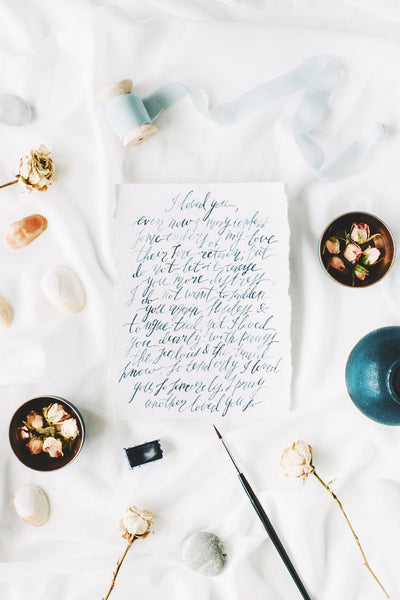 I loved you,
even now I may confess
Some embers of my love
their fire retain, but
do not let it cause
you more distress
I do not want to sadden
you again, Hopeless &
tongue tied, yet I loved
you dearly with pangs
the jealous & the timid
know so tenderly I loved
you So Sincerely, I pray
another loved you So